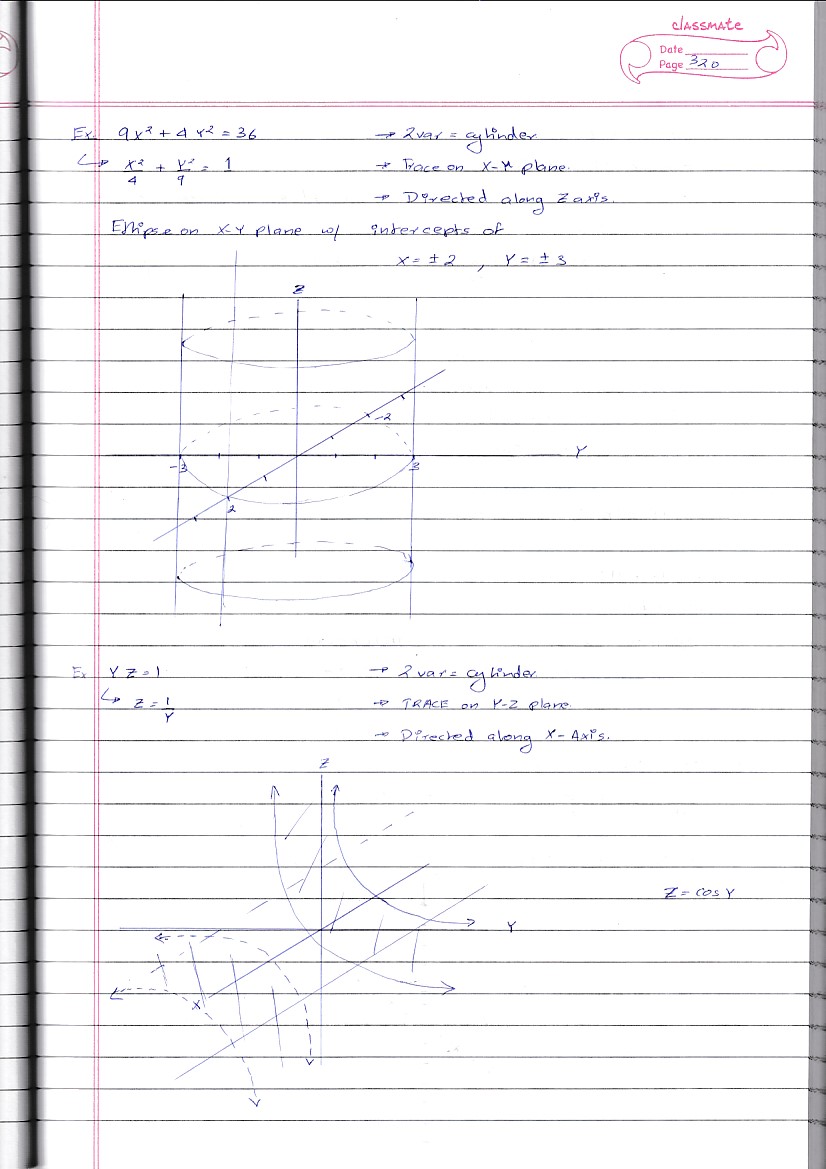 classmate
Date
Page 320
Ex. 9x² + 4y² = 36 → 2var = cylinder
↳ x²/4 + y²/9 = 1 → Trace on X-Y plane.
→ Directed along Z axis.
Ellipse on X-Y plane w/ intercepts of
X = ± 2 , Y = ± 3
Z
-2
Y
-3
3
2
Ex YZ = 1 → 2 var = cylinder
↳ Z = 1/Y → TRACE on Y-Z plane.
→ Directed along X-Axis.
Z
Z = cos Y
Y
X